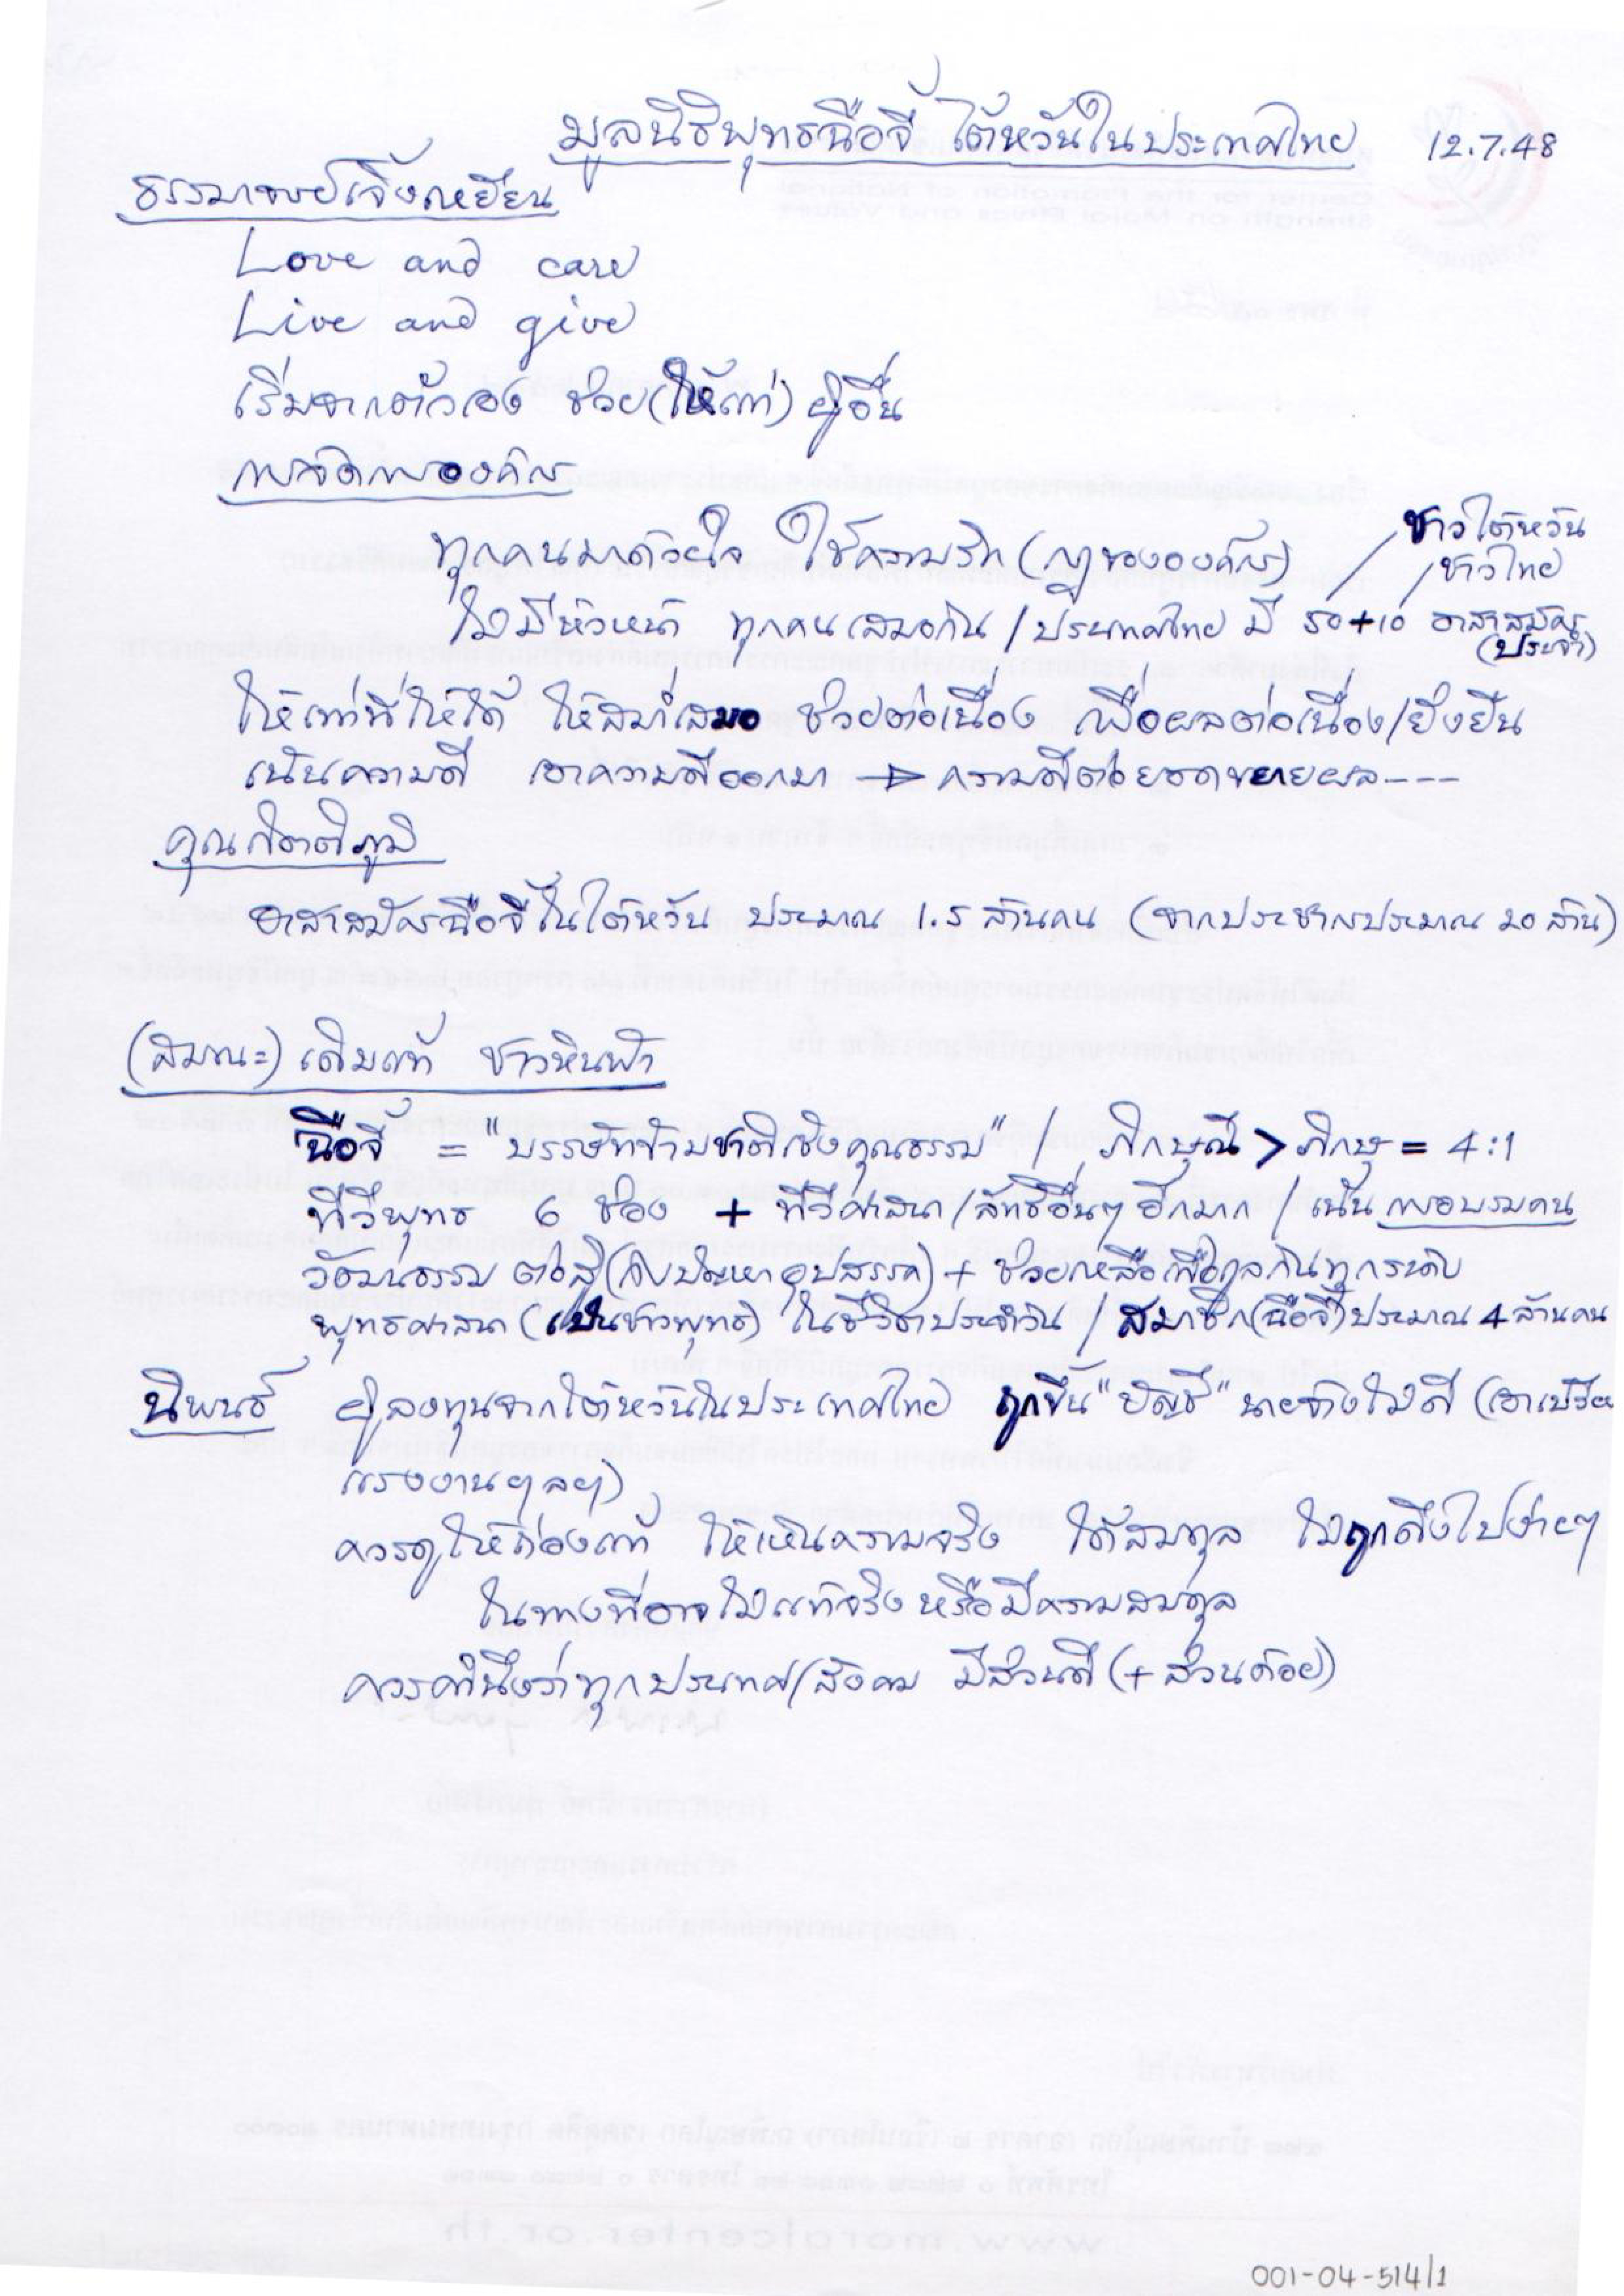 มูลนิธิพุทธฉือจี้ ไต้หวันในประเทศไทย 12.7.48
ธรรมาจารย์เจิ้งเหยียน
Love and care
Live and give
เริ่มจากตัวเอง ช่วย(ให้แก่) ผู้อื่น
การจัดการองค์กร
ทุกคนมาด้วยใจ ใช้ความรัก (กฎขององค์กร) / ชาวไต้หวัน
/ ชาวไทย
ไม่มีหัวหน้า ทุกคนเสมอกัน / ประเทศไทย มี 50+10 อาสาสมัคร
(ประจำ)
ให้เท่าที่ให้ได้ ให้สม่ำเสมอ ช่วยต่อเนื่อง เพื่อผลต่อเนื่อง/ยั่งยืน
เน้นความดี เอาความดีออกมา → ความดีต่อยอดขยายผล----
คุณกิตติภูมิ
อาสาสมัครฉือจี้ในไต้หวัน ประมาณ 1.5 ล้านคน (จากประชากรประมาณ 20 ล้าน)
(สมณะ) เดิมแท้ ชาวหินฟ้า
ฉือจี้ = "บรรษัทข้ามชาติเชิงคุณธรรม" / ภิกษุณี > ภิกษุ = 4:1
ทีวีพุทธ 6 ช่อง + ทีวีศาสนา/ลัทธิอื่นๆ อีกมาก / เน้น การอบรมคน
วัฒนธรรม ต่อสู้(กับปัญหา อุปสรรค) + ช่วยเหลือเกื้อกูลกันทุกระดับ
พุทธศาสนา (เป็นชาวพุทธ) ในชีวิตประจำวัน / สมาชิก(ฉือจี้)ประมาณ 4 ล้านคน
นิพนธ์ ผู้ลงทุนจากไต้หวันในประเทศไทย ถูกขึ้น "บัญชี" นายจ้างไม่ดี (เอาเปรียบ
แรงงานฯลฯ)
ควรดูให้ถ่องแท้ ให้เห็นความจริง ได้สมดุล ไม่ถูกดึงไปง่ายๆ
ในทางที่อาจไม่แท้จริง หรือมีความสมดุล
ควรคำนึงว่าทุกประเทศ/สังคม มีส่วนดี (+ ส่วนด้อย)
001-04-514/1